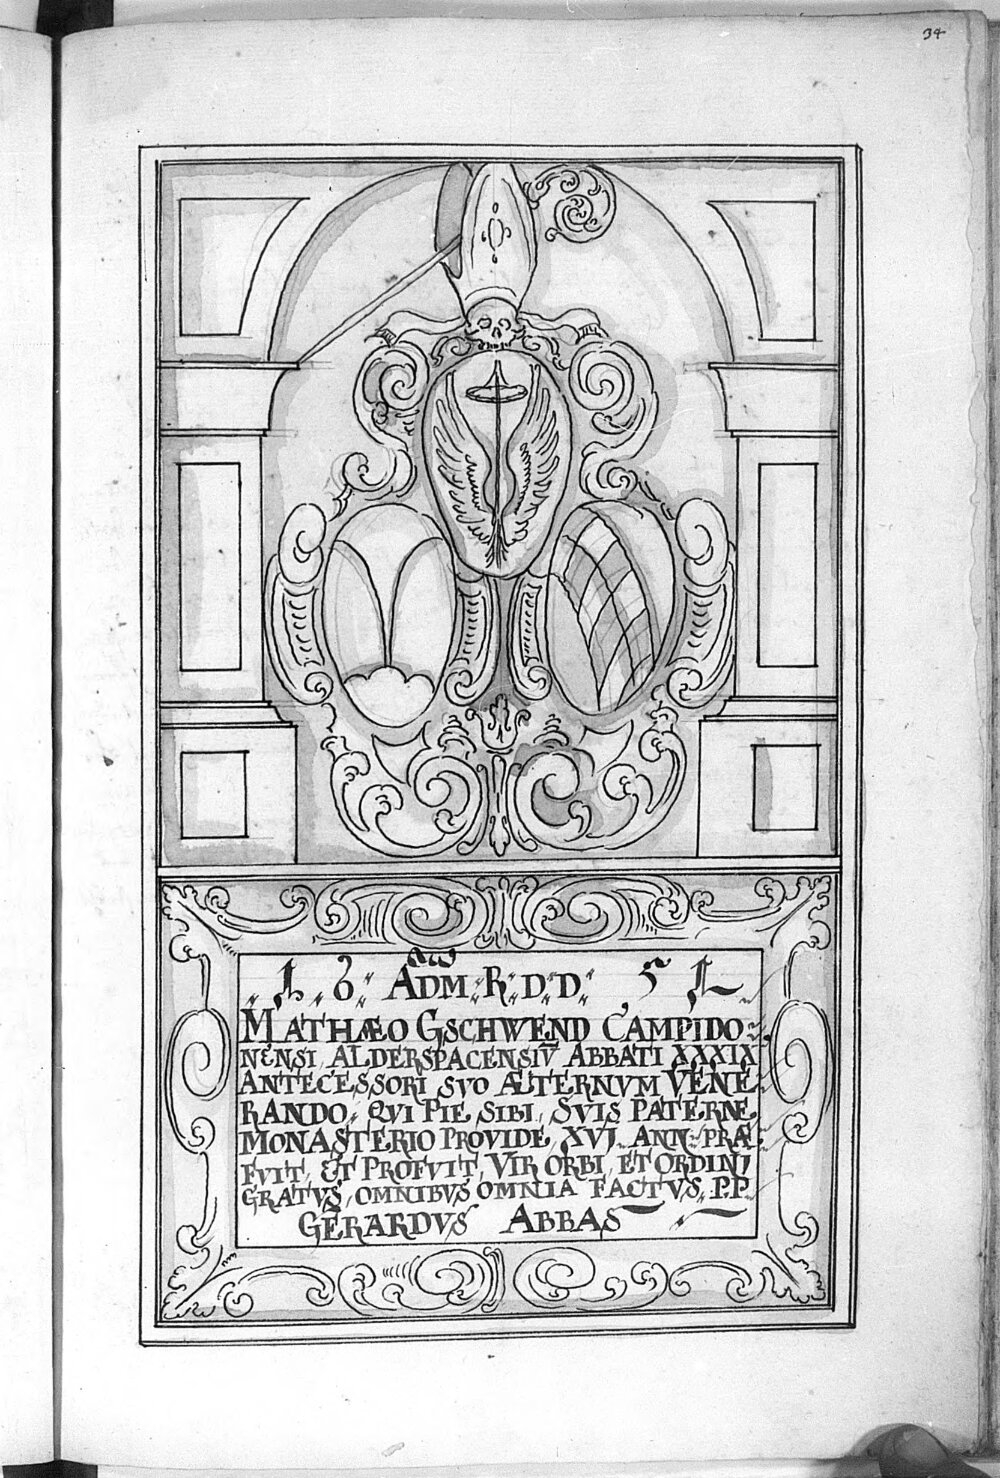 34
16 ADM: R: D: D: 51
MATHÆO GSCHWEND CAMPIDO=
NENSI, ALDERSPACENSIV̄ ABBATI XXXIX
ANTECESSORI SVO ÆTERNVM VENE
RANDO, QVI PIE SIBI, SVIS PATERNE
MONASTERIO PROVIDE, XVI ANN: PRÆ
FVIT, ET PROFVIT, VIR ORBI, ET ORDINI
GRATVS, OMNIBVS OMNIA FACTVS, P.P.
GERARDVS ABBAS